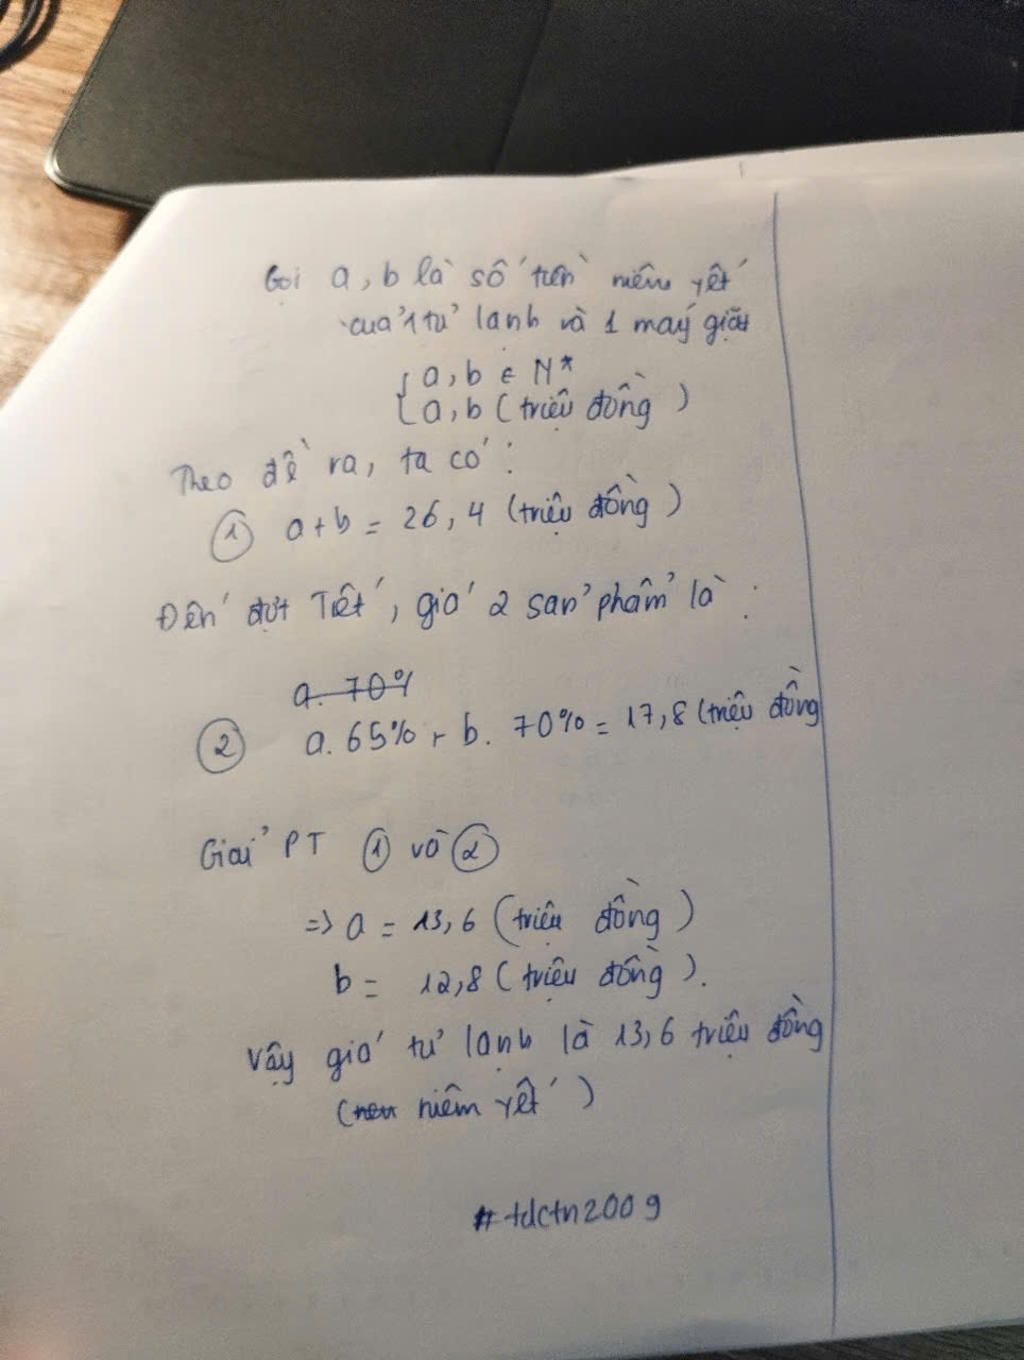 Gọi a, b là số tiền niêm yết
của 1 tủ lạnh và 1 máy giặt
{ a, b ∈ N*
a, b (triệu đồng)
Theo đề ra, ta có:
① a + b = 26,4 (triệu đồng)
Đến đợt Tết, giá 2 sản phẩm là:
a. 70%
② a. 65% + b. 70% = 17,8 (triệu đồng)
Giải PT ① và ②
=> a = 13,6 (triệu đồng)
b = 12,8 (triệu đồng).
Vậy giá tủ lạnh là 13,6 triệu đồng
(niêm yết)
#tdctn2009